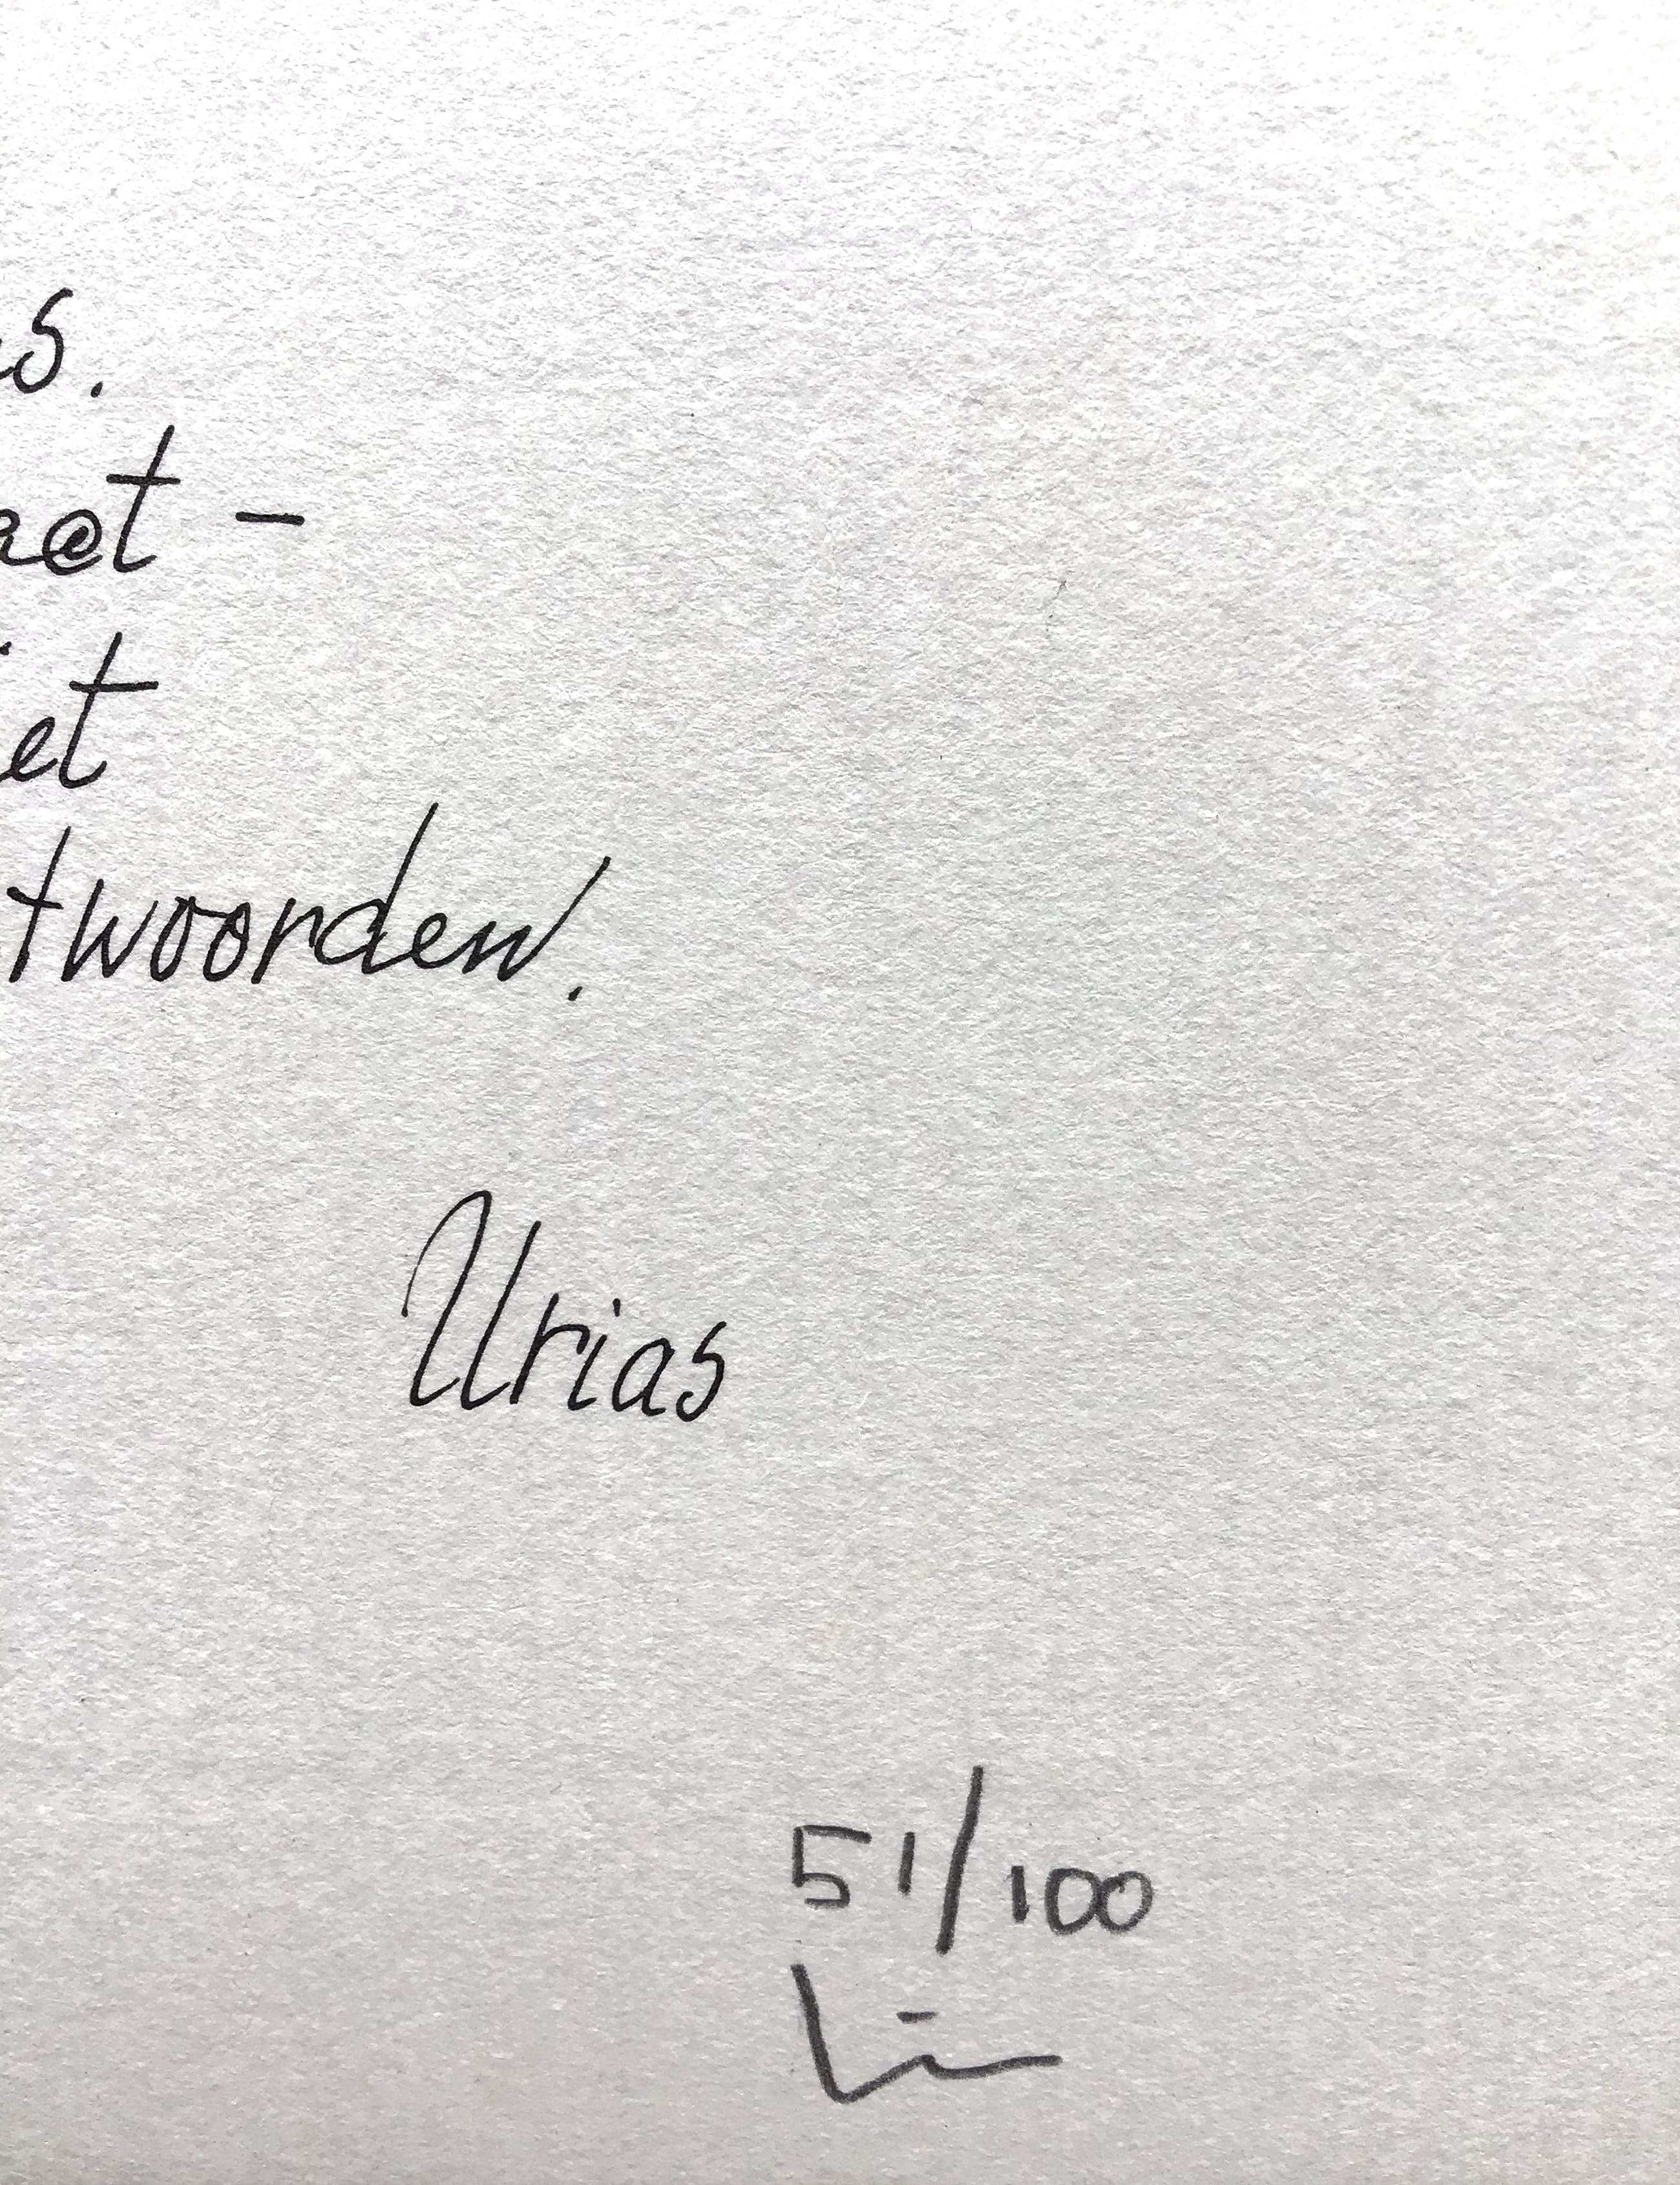 s.
aet -
et
twoorden.
Urias
51/100